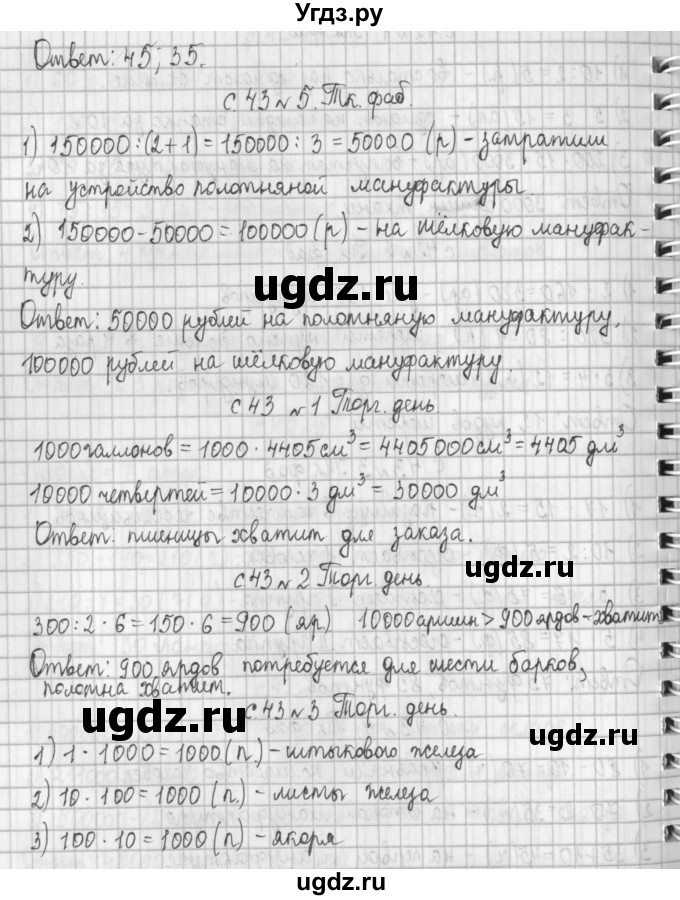 Угдз.ру
Ответ: 45; 35.
с 43 № 5. Тк. фаб.
1) 150000 : (2+1) = 150000 : 3 = 50000 (р) – затратили
на устройство полотняной мануфактуры.
2) 150000 - 50000 = 100000 (р) – на шёлковую мануфак-
туру.
ugdz.ru
Ответ: 50000 рублей на полотняную мануфактуру,
100000 рублей на шёлковую мануфактуру.
с 43 № 1 Торг. день
1000 галлонов = 1000 · 4405 см³ = 4405000 см³ = 4405 дм³
10000 четвертей = 10000 · 3 дм³ = 30000 дм³
Ответ. пшеницы хватит для заказа.
ugdz.ru
с 43 № 2 Торг. день
300 : 2 · 6 = 150 · 6 = 900 (яр) 10000 аршин > 900 ярдов – хватит
Ответ: 900 ярдов потребуется для шести барков,
полотна хватит.
ugdz.ru
с 43 № 3 Торг. день.
1) 1 · 1000 = 1000 (п.) – штыкового железа
2) 10 · 100 = 1000 (п) – листы железа
3) 100 · 10 = 1000 (п) – якоря
ugdz.ru